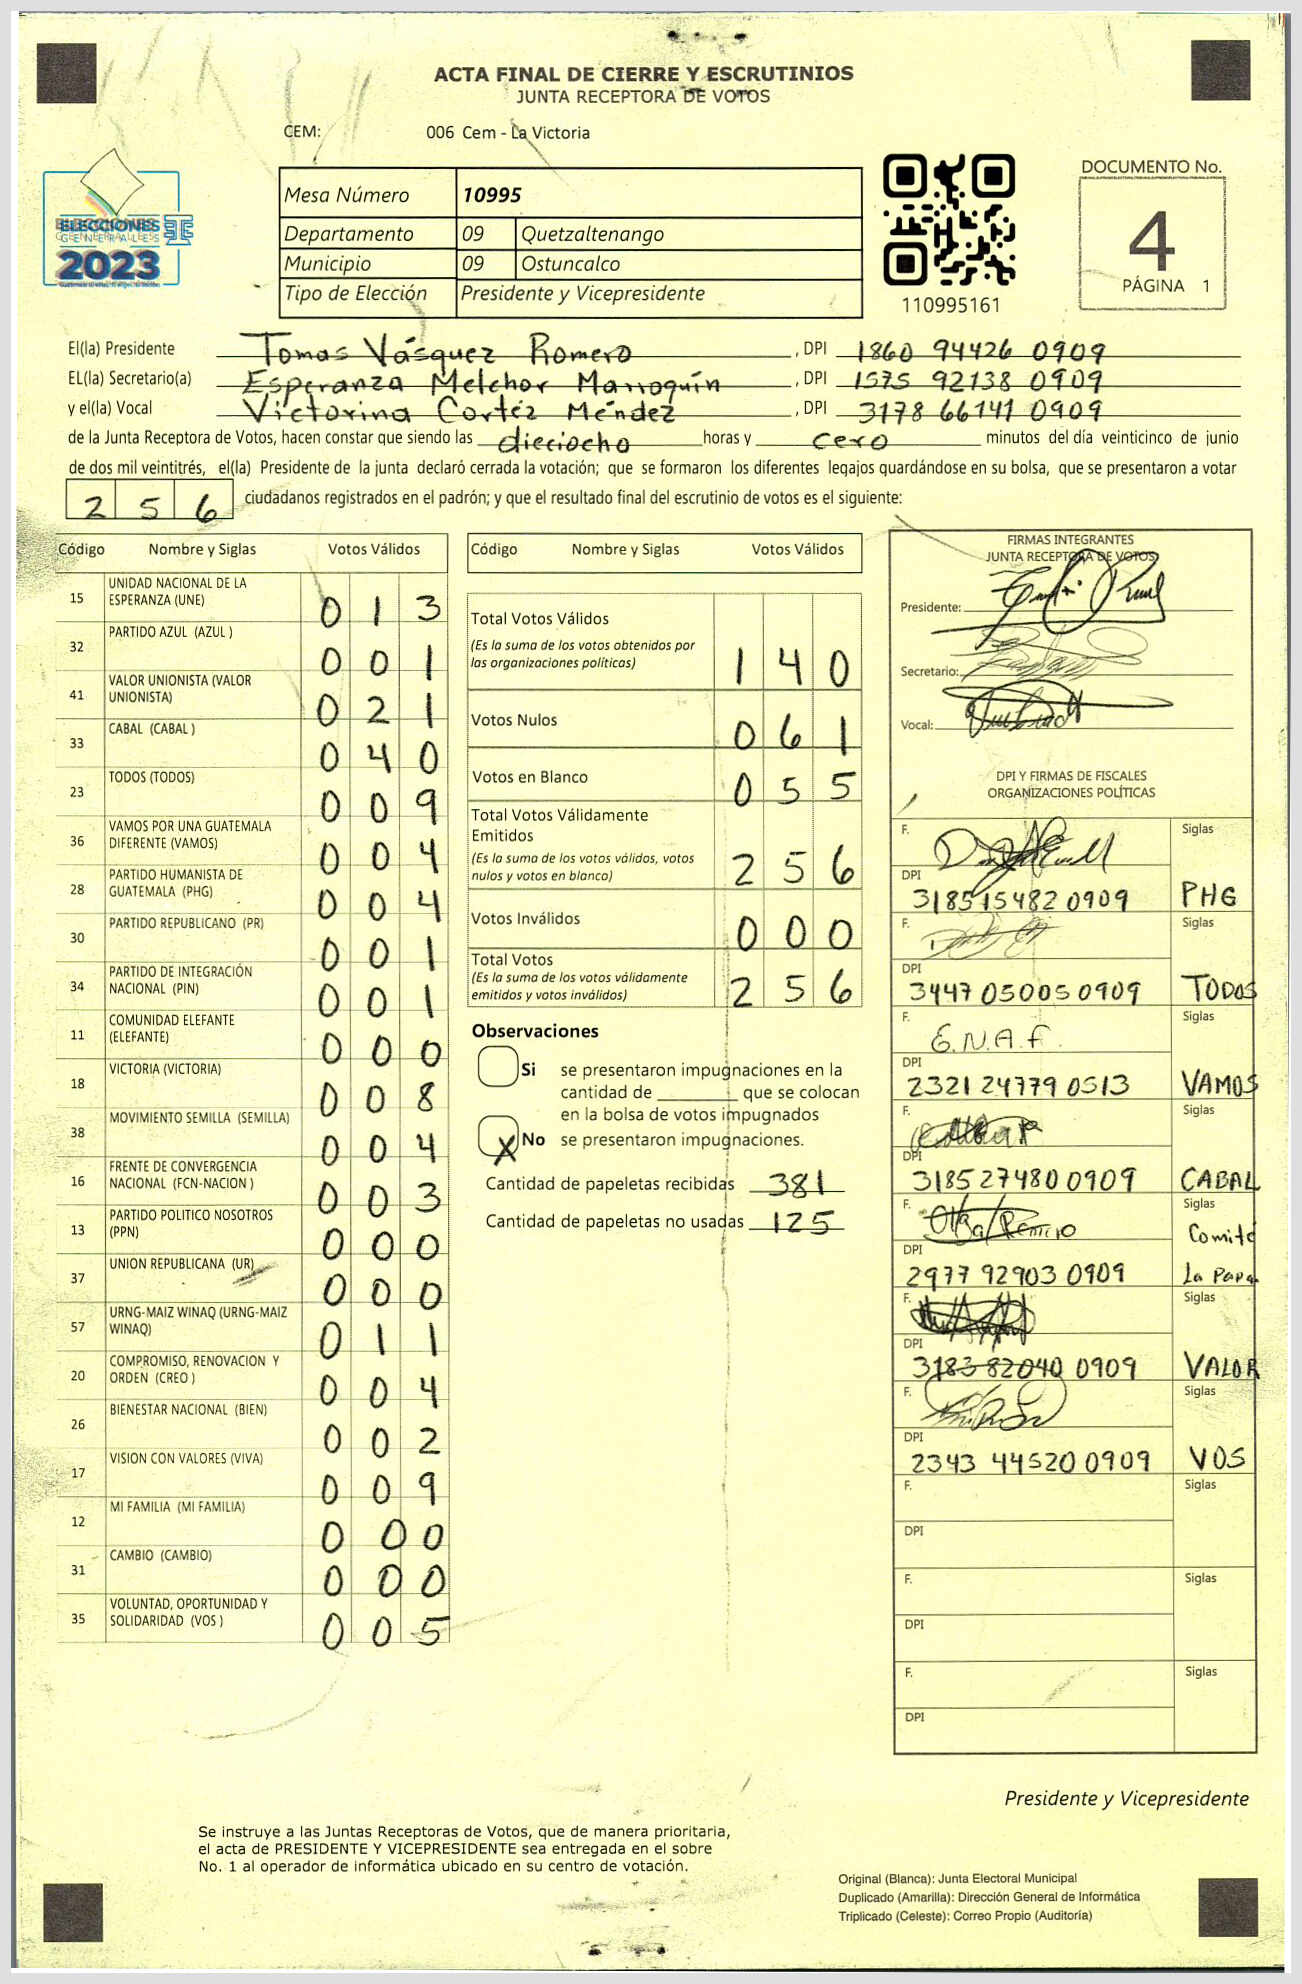 ACTA FINAL DE CIERRE Y ESCRUTINIOS
JUNTA RECEPTORA DE VOTOS
CEM: 006 Cem - La Victoria
ELECCIONES
GENERALES
2023
Mesa Número 10995
Departamento 09 Quetzaltenango
Municipio 09 Ostuncalco
Tipo de Elección Presidente y Vicepresidente
110995161
DOCUMENTO No.
4
PÁGINA 1
El(la) Presidente Tomas Vásquez Romero , DPI 1860 94426 0909
EL(la) Secretario(a) Esperanza Melchor Marroquín , DPI 1575 92138 0909
y el(la) Vocal Victorina Cortéz Méndez , DPI 3178 66141 0909
de la Junta Receptora de Votos, hacen constar que siendo las dieciocho horas y cero minutos del día veinticinco de junio
de dos mil veintitrés, el(la) Presidente de la junta declaró cerrada la votación; que se formaron los diferentes legajos quardándose en su bolsa, que se presentaron a votar
256 ciudadanos registrados en el padrón; y que el resultado final del escrutinio de votos es el siguiente:
Código Nombre y Siglas Votos Válidos
15 UNIDAD NACIONAL DE LA
ESPERANZA (UNE) 013
32 PARTIDO AZUL (AZUL ) 001
41 VALOR UNIONISTA (VALOR
UNIONISTA) 021
33 CABAL (CABAL ) 040
23 TODOS (TODOS) 009
36 VAMOS POR UNA GUATEMALA
DIFERENTE (VAMOS) 004
28 PARTIDO HUMANISTA DE
GUATEMALA (PHG) 004
30 PARTIDO REPUBLICANO (PR) 001
34 PARTIDO DE INTEGRACIÓN
NACIONAL (PIN) 001
11 COMUNIDAD ELEFANTE
(ELEFANTE) 000
18 VICTORIA (VICTORIA) 008
38 MOVIMIENTO SEMILLA (SEMILLA) 004
16 FRENTE DE CONVERGENCIA
NACIONAL (FCN-NACION ) 003
13 PARTIDO POLITICO NOSOTROS
(PPN) 000
37 UNION REPUBLICANA (UR) 000
57 URNG-MAIZ WINAQ (URNG-MAIZ
WINAQ) 011
20 COMPROMISO, RENOVACION Y
ORDEN (CREO ) 004
26 BIENESTAR NACIONAL (BIEN) 002
17 VISION CON VALORES (VIVA) 009
12 MI FAMILIA (MI FAMILIA) 000
31 CAMBIO (CAMBIO) 000
35 VOLUNTAD, OPORTUNIDAD Y
SOLIDARIDAD (VOS ) 005
Código Nombre y Siglas Votos Válidos
Total Votos Válidos
(Es la suma de los votos obtenidos por
las organizaciones políticas) 140
Votos Nulos 061
Votos en Blanco 055
Total Votos Válidamente
Emitidos
(Es la suma de los votos válidos, votos
nulos y votos en blanco) 256
Votos Inválidos 000
Total Votos
(Es la suma de los votos válidamente
emitidos y votos inválidos) 256
Observaciones
Si se presentaron impugnaciones en la
cantidad de ________ que se colocan
en la bolsa de votos impugnados
X No se presentaron impugnaciones.
Cantidad de papeletas recibidas 381
Cantidad de papeletas no usadas 125
FIRMAS INTEGRANTES
JUNTA RECEPTORA DE VOTOS
Presidente:
Secretario:
Vocal:
DPI Y FIRMAS DE FISCALES
ORGANIZACIONES POLÍTICAS
F. Siglas
DPI
318515482 0909 PHG
F. Siglas
DPI
3447 05005 0909 TODOS
F. E.N.A.F. Siglas
DPI
2321 24779 0513 VAMOS
F. Siglas
DPI
3185 27480 0909 CABAL
F. Siglas
Comité
DPI
2977 92903 0909 La Papa
F. Siglas
DPI
3183 82040 0909 VALOR
F. Siglas
DPI
2343 44520 0909 VOS
F. Siglas
DPI
F. Siglas
DPI
F. Siglas
DPI
Presidente y Vicepresidente
Se instruye a las Juntas Receptoras de Votos, que de manera prioritaria,
el acta de PRESIDENTE Y VICEPRESIDENTE sea entregada en el sobre
No. 1 al operador de informática ubicado en su centro de votación.
Original (Blanca): Junta Electoral Municipal
Duplicado (Amarilla): Dirección General de Informática
Triplicado (Celeste): Correo Propio (Auditoría)